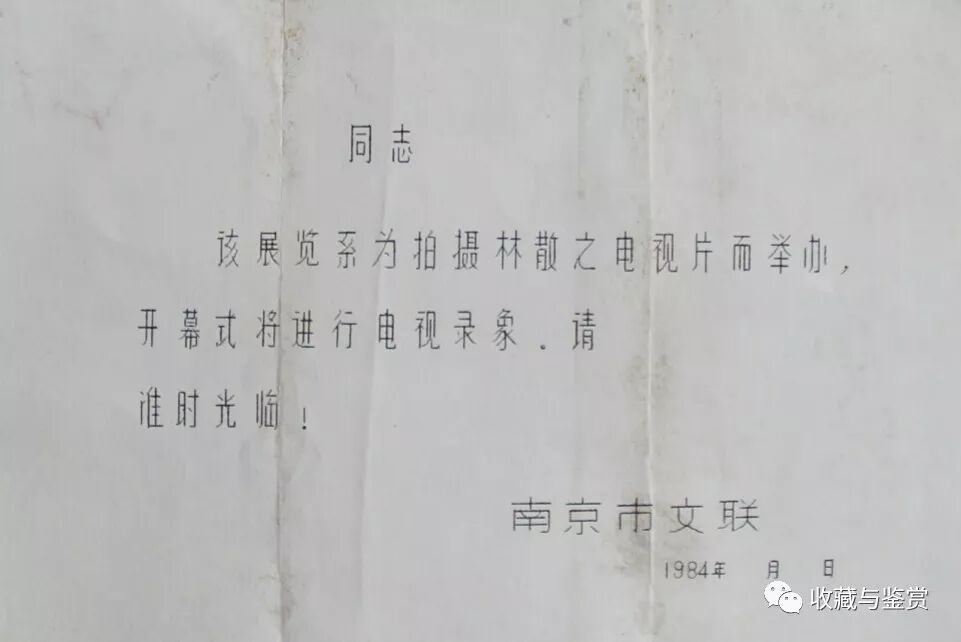 同志
该展览系为拍摄林散之电视片而举办，
开幕式将进行电视录象．请
准时光临！
南京市文联
1984年 月 日
收藏与鉴赏